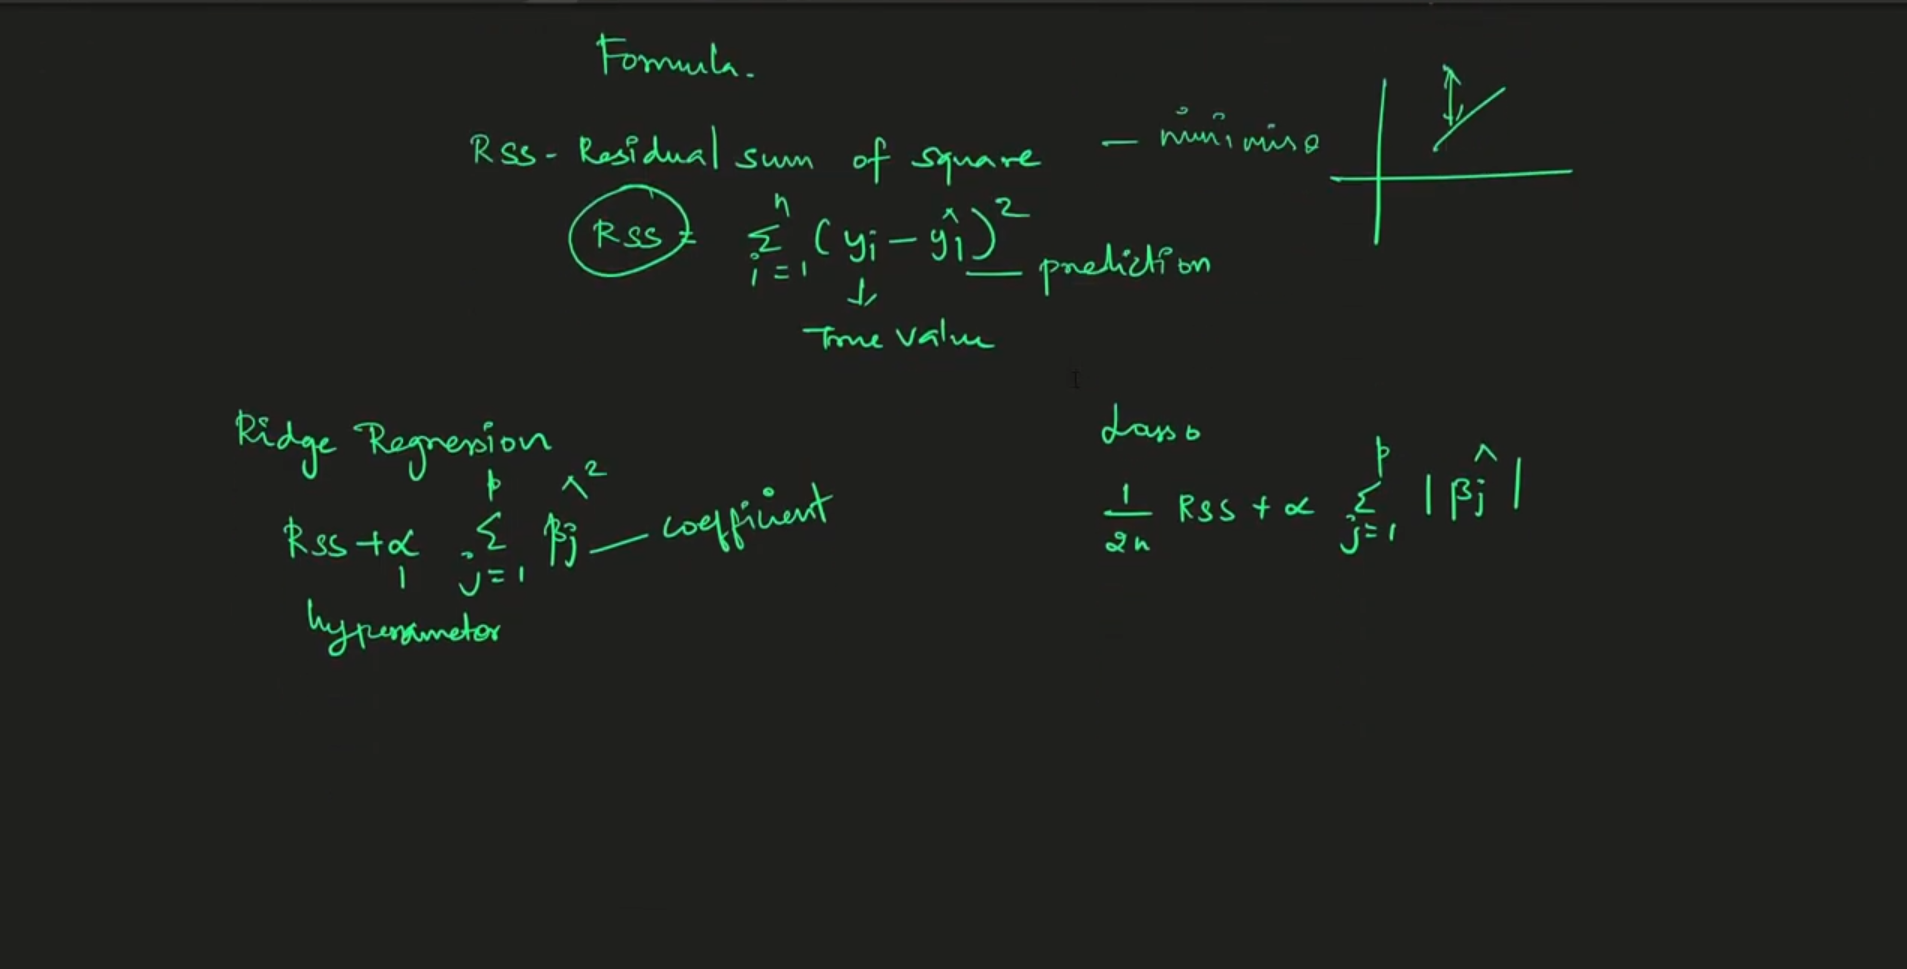 Formula.
RSS - Residual sum of square — minimise
RSS = Σ_{i=1}^{n} (yi - ŷi)² — prediction
↓
True value
Ridge Regression
RSS + α Σ_{j=1}^{p} β̂j² — coefficient
hyperameter
Lasso
1/2n RSS + α Σ_{j=1}^{p} |β̂j|